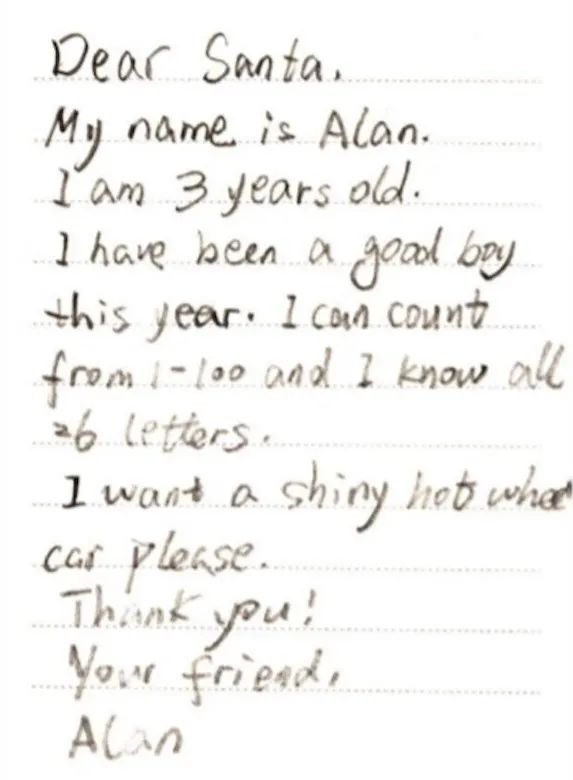 Dear Santa,
My name is Alan.
I am 3 years old.
I have been a good boy
this year. I can count
from 1-100 and I know all
26 letters.
I want a shiny hot whee
car please.
Thank you!
Your friend,
Alan